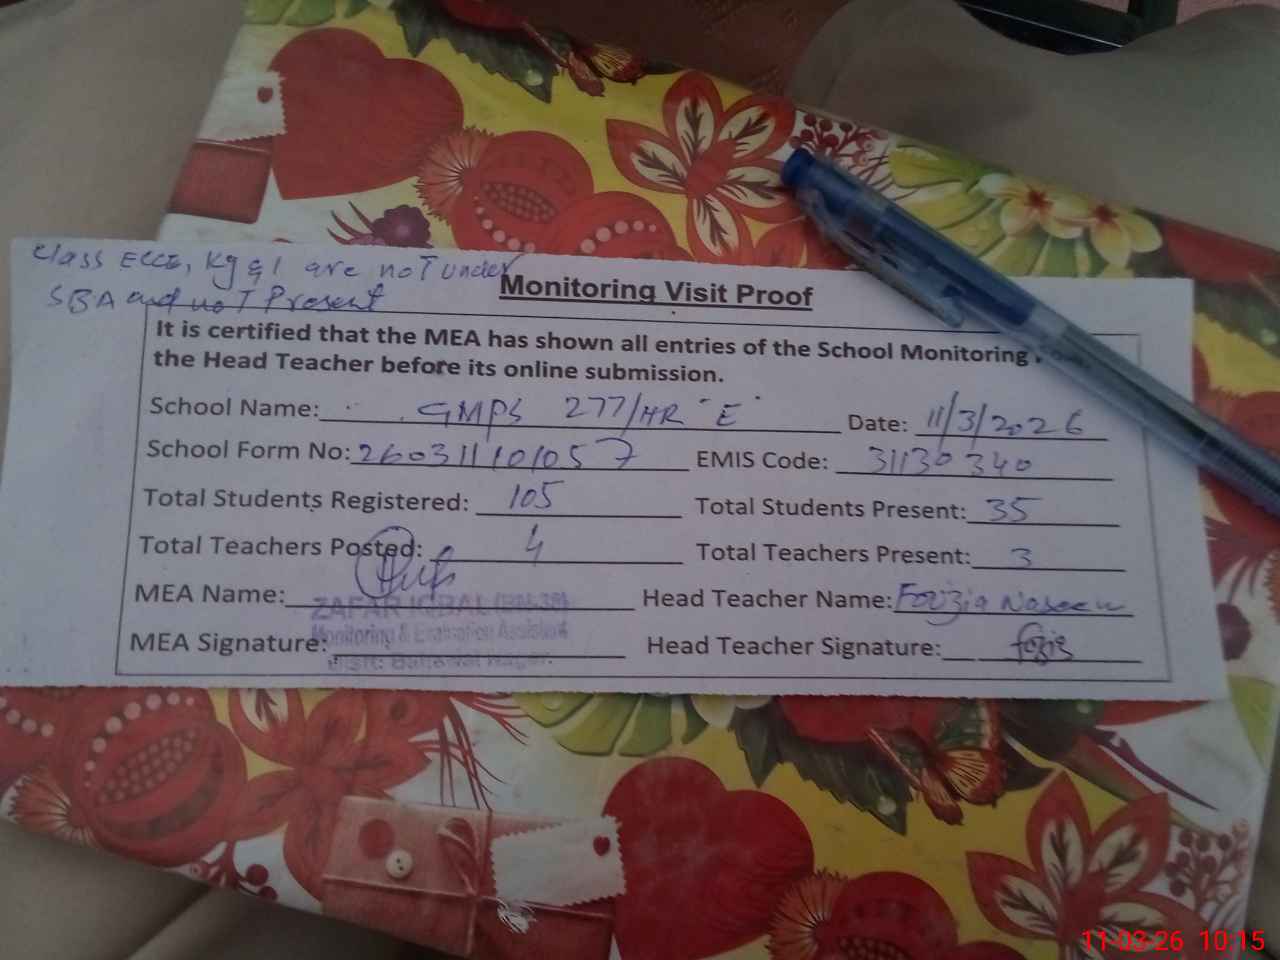 Class ECCE, Kg & 1 are not under
SBA and not Present
Monitoring Visit Proof
It is certified that the MEA has shown all entries of the School Monitoring
the Head Teacher before its online submission.
School Name: GMPS 277/HR "E" Date: 11/3/2026
School Form No: 260311101057 EMIS Code: 31130340
Total Students Registered: 105 Total Students Present: 35
Total Teachers Posted: 4 Total Teachers Present: 3
MEA Name: ZAFAR IQBAL Head Teacher Name: Fouzia Naseem
Monitoring & Evaluation Assistant
MEA Signature: Head Teacher Signature: fozia
Distt: Bahawal Nagar.
11-03-26 10:15